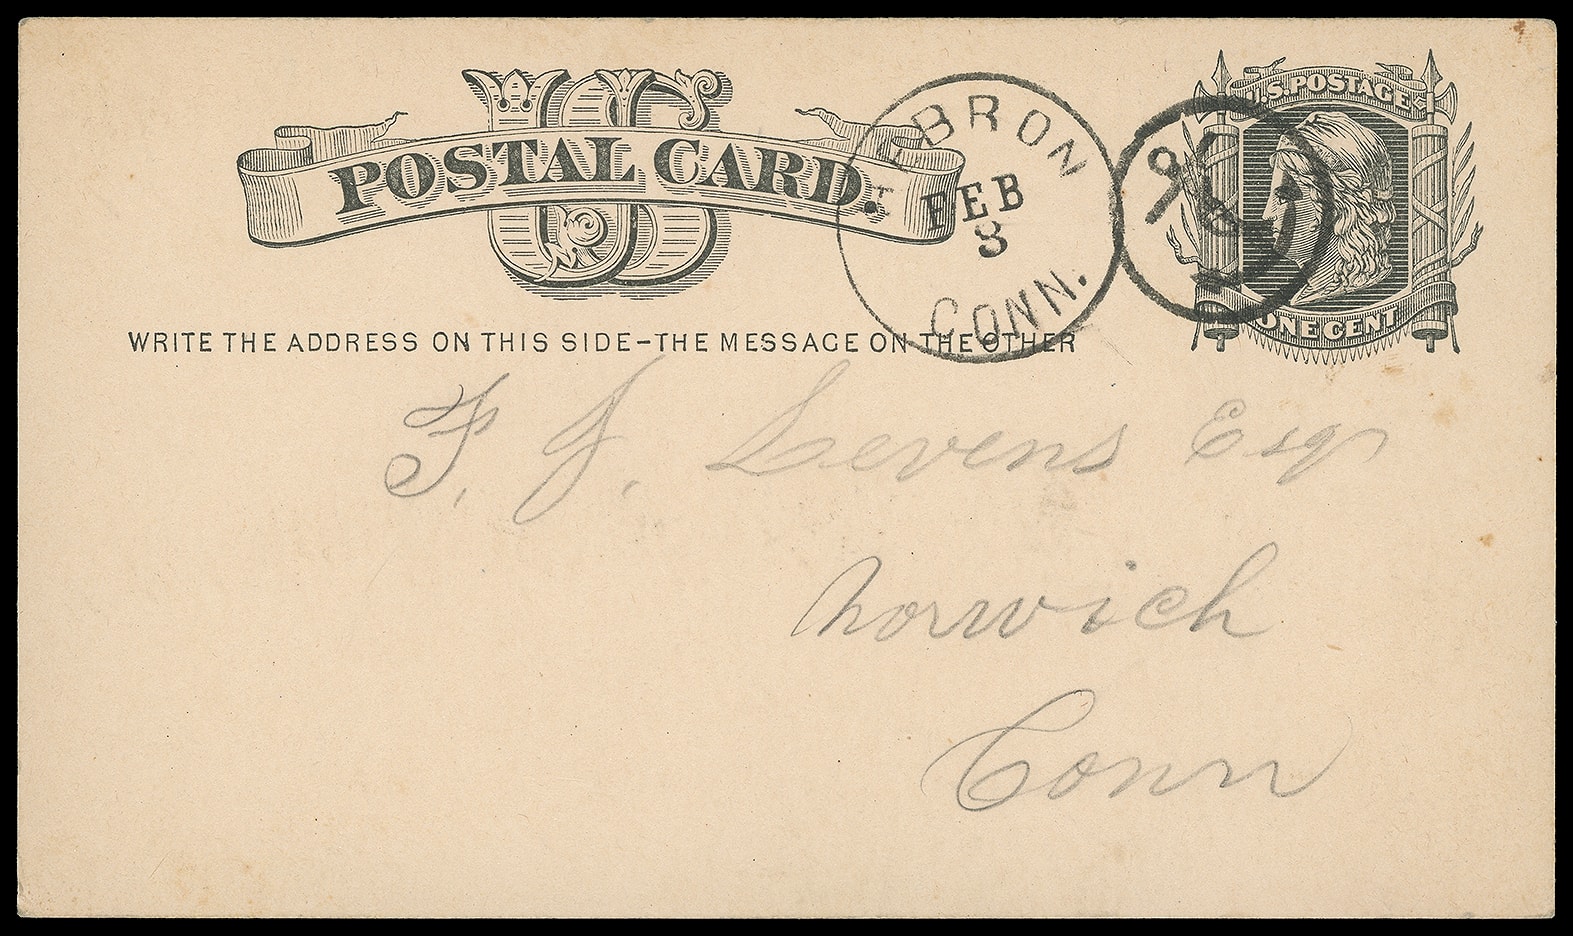 US
POSTAL CARD.
HEBRON
FEB
8
CONN.
U.S. POSTAGE
ONE CENT
WRITE THE ADDRESS ON THIS SIDE-THE MESSAGE ON THE OTHER
F. J. Levens Esqr
Norwich
Conn